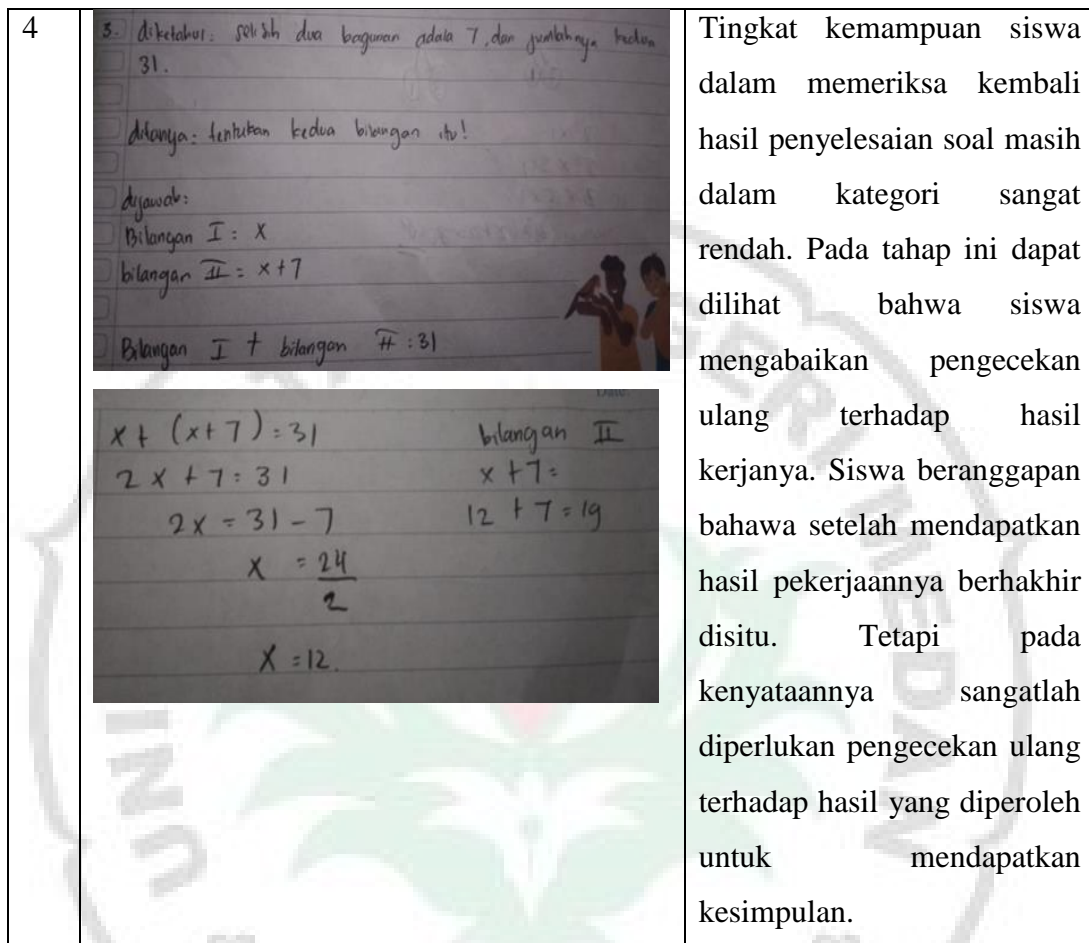 4
3. diketahui: selisih dua bagunan adala 7, dan jumlahnya kedua
31.
ditanya: tentukan kedua bilangan itu!
dijawab:
Bilangan I : x
bilangan II = x+7
Bilangan I + bilangan II : 31
x + (x+7) = 31
2x + 7 = 31
2x = 31 - 7
x = 24
2
x = 12.
bilangan II
x + 7 =
12 + 7 = 19
Tingkat kemampuan siswa
dalam memeriksa kembali
hasil penyelesaian soal masih
dalam kategori sangat
rendah. Pada tahap ini dapat
dilihat bahwa siswa
mengabaikan pengecekan
ulang terhadap hasil
kerjanya. Siswa beranggapan
bahawa setelah mendapatkan
hasil pekerjaannya berhakhir
disitu. Tetapi pada
kenyataannya sangatlah
diperlukan pengecekan ulang
terhadap hasil yang diperoleh
untuk mendapatkan
kesimpulan.